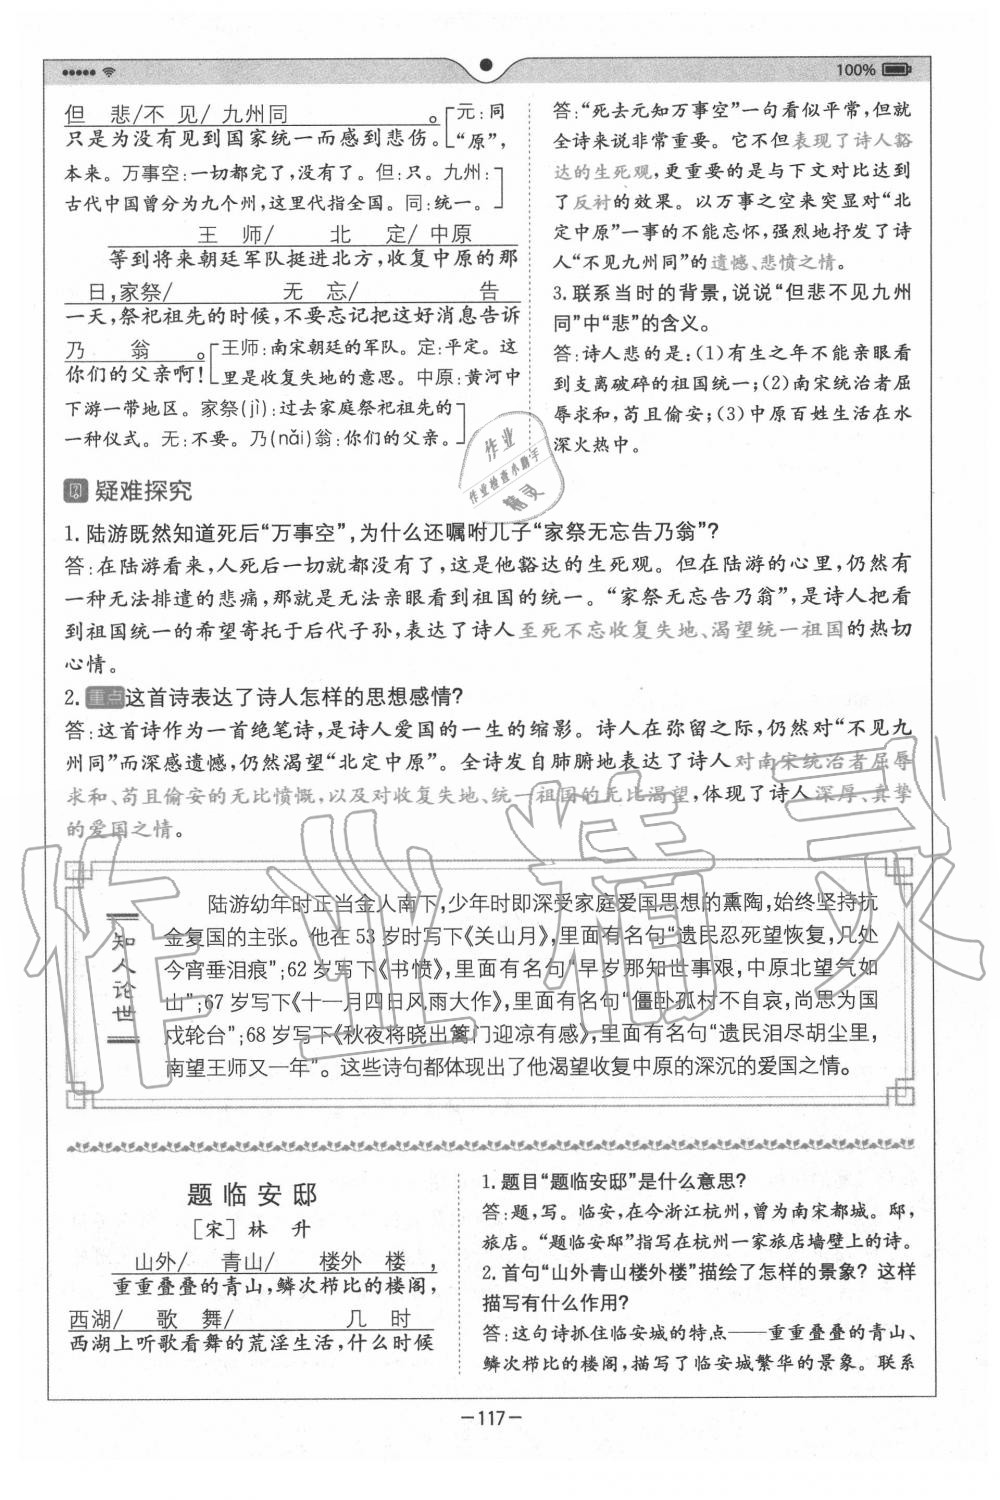 100%
但 悲/不 见/ 九州同 。元:同
只是为没有见到国家统一而感到悲伤。“原”,
本来。万事空:一切都完了,没有了。但:只。九州:
古代中国曾分为九个州,这里代指全国。同:统一。
王 师/ 北 定/ 中原
等到将来朝廷军队挺进北方,收复中原的那
日,家祭/ 无 忘/ 告
一天,祭祀祖先的时候,不要忘记把这好消息告诉
乃 翁 。王师:南宋朝廷的军队。定:平定。这
你们的父亲啊!里是收复失地的意思。中原:黄河中
下游一带地区。家祭(jì):过去家庭祭祀祖先的
一种仪式。无:不要。乃(nǎi)翁:你们的父亲。
答:“死去元知万事空”一句看似平常,但就
全诗来说非常重要。它不但表现了诗人豁
达的生死观,更重要的是与下文对比达到
了反衬的效果。以万事之空来突显对“北
定中原”一事的不能忘怀,强烈地抒发了诗
人“不见九州同”的遗憾、悲愤之情。
3.联系当时的背景,说说“但悲不见九州
同”中“悲”的含义。
答:诗人悲的是:(1)有生之年不能亲眼看
到支离破碎的祖国统一;(2)南宋统治者屈
辱求和,苟且偷安;(3)中原百姓生活在水
深火热中。
作业
作业检查小助手
精灵
疑难探究
1.陆游既然知道死后“万事空”,为什么还嘱咐儿子“家祭无忘告乃翁”?
答:在陆游看来,人死后一切就都没有了,这是他豁达的生死观。但在陆游的心里,仍然有
一种无法排遣的悲痛,那就是无法亲眼看到祖国的统一。“家祭无忘告乃翁”,是诗人把看
到祖国统一的希望寄托于后代子孙,表达了诗人至死不忘收复失地、渴望统一祖国的热切
心情。
2.重点这首诗表达了诗人怎样的思想感情?
答:这首诗作为一首绝笔诗,是诗人爱国的一生的缩影。诗人在弥留之际,仍然对“不见九
州同”而深感遗憾,仍然渴望“北定中原”。全诗发自肺腑地表达了诗人对南宋统治者屈辱
求和、苟且偷安的无比愤慨,以及对收复失地、统一祖国的无比渴望,体现了诗人深厚、真挚
的爱国之情。
作业精灵
知人论世
陆游幼年时正当金人南下,少年时即深受家庭爱国思想的熏陶,始终坚持抗
金复国的主张。他在 53 岁时写下《关山月》,里面有名句“遗民忍死望恢复,几处
今宵垂泪痕”;62 岁写下《书愤》,里面有名句“早岁那知世事艰,中原北望气如
山”;67 岁写下《十一月四日风雨大作》,里面有名句“僵卧孤村不自哀,尚思为国
戍轮台”;68 岁写下《秋夜将晓出篱门迎凉有感》,里面有名句“遗民泪尽胡尘里,
南望王师又一年”。这些诗句都体现出了他渴望收复中原的深沉的爱国之情。
题临安邸
[宋]林 升
山外/ 青山/ 楼外 楼 ,
重重叠叠的青山,鳞次栉比的楼阁,
西湖/ 歌 舞/ 几 时
西湖上听歌看舞的荒淫生活,什么时候
1.题目“题临安邸”是什么意思?
答:题,写。临安,在今浙江杭州,曾为南宋都城。邸,
旅店。“题临安邸”指写在杭州一家旅店墙壁上的诗。
2.首句“山外青山楼外楼”描绘了怎样的景象?这样
描写有什么作用?
答:这句诗抓住临安城的特点——重重叠叠的青山、
鳞次栉比的楼阁,描写了临安城繁华的景象。联系
－117－